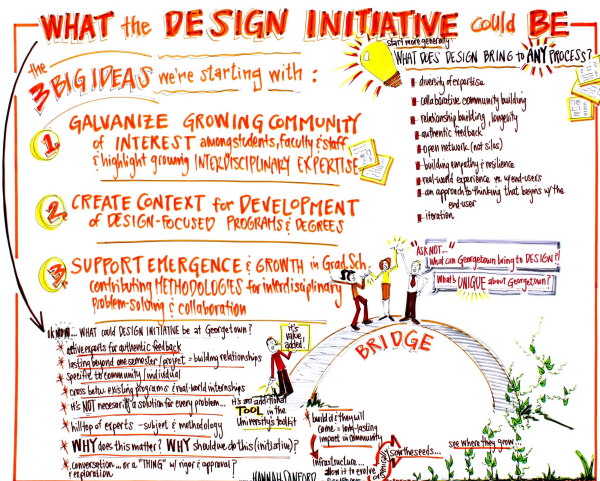 WHAT the DESIGN INITIATIVE could BE
the
3 BIG IDEAS we're starting with:
1.
GALVANIZE GROWING COMMUNITY
of INTEREST among students, faculty & staff
& highlight growing INTERDISCIPLINARY EXPERTISE
2.
CREATE CONTEXT for DEVELOPMENT
of DESIGN-FOCUSED PROGRAMS & DEGREES
3.
SUPPORT EMERGENCE & GROWTH in Grad. Sch.
contributing METHODOLOGIES for interdisciplinary
Problem-solving & collaboration
start more generally:
WHAT DOES DESIGN BRING to ANY PROCESS?
diversity of expertise
collaborative community building
relationship building longevity
authentic feedback
open network (not silos)
building empathy & resilience
real-world experience w/end-users
an approach to thinking that begins w/the
end user
iteration
"ASK NOT...
"what can Georgetown bring to DESIGN?"
What's UNIQUE about Georgetown?
BRIDGE
it's
value
added!
ok NOW... WHAT could DESIGN INITIATIVE be at Georgetown?
active experts for authentic feedback
lasting beyond one semester/project = building relationships
specific to community/individual
cross betw. existing programs & real-world internships
it's NOT necessarily a solution for every problem...
hilltop of experts - subject & methodology
WHY does this matter? WHY should we do this (initiative)?
conversation... or a "THING" w/ rigor & approval?
& exploration
it's an additional
TOOL in the
University's toolkit
HANNAH SANFORD
build it & they will
come = long-lasting
impact in community
infrastructure...
allow it to evolve
organically
sow the seeds...
see where they grow